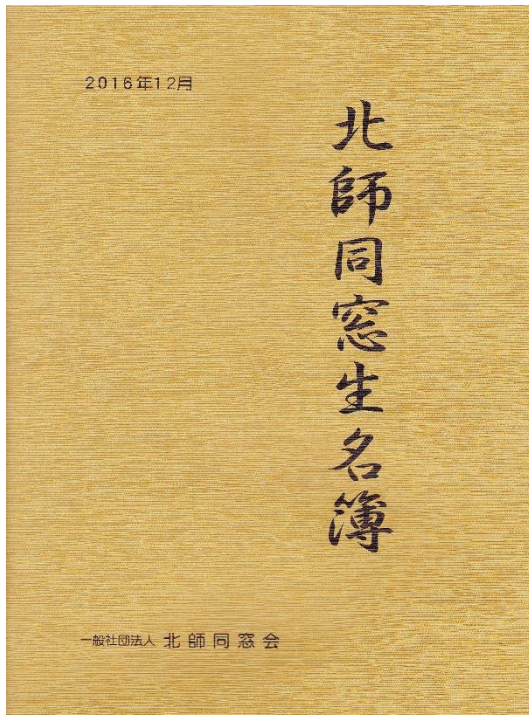 2016年12月
北師同窓生名簿
一般社団法人 北師同窓会